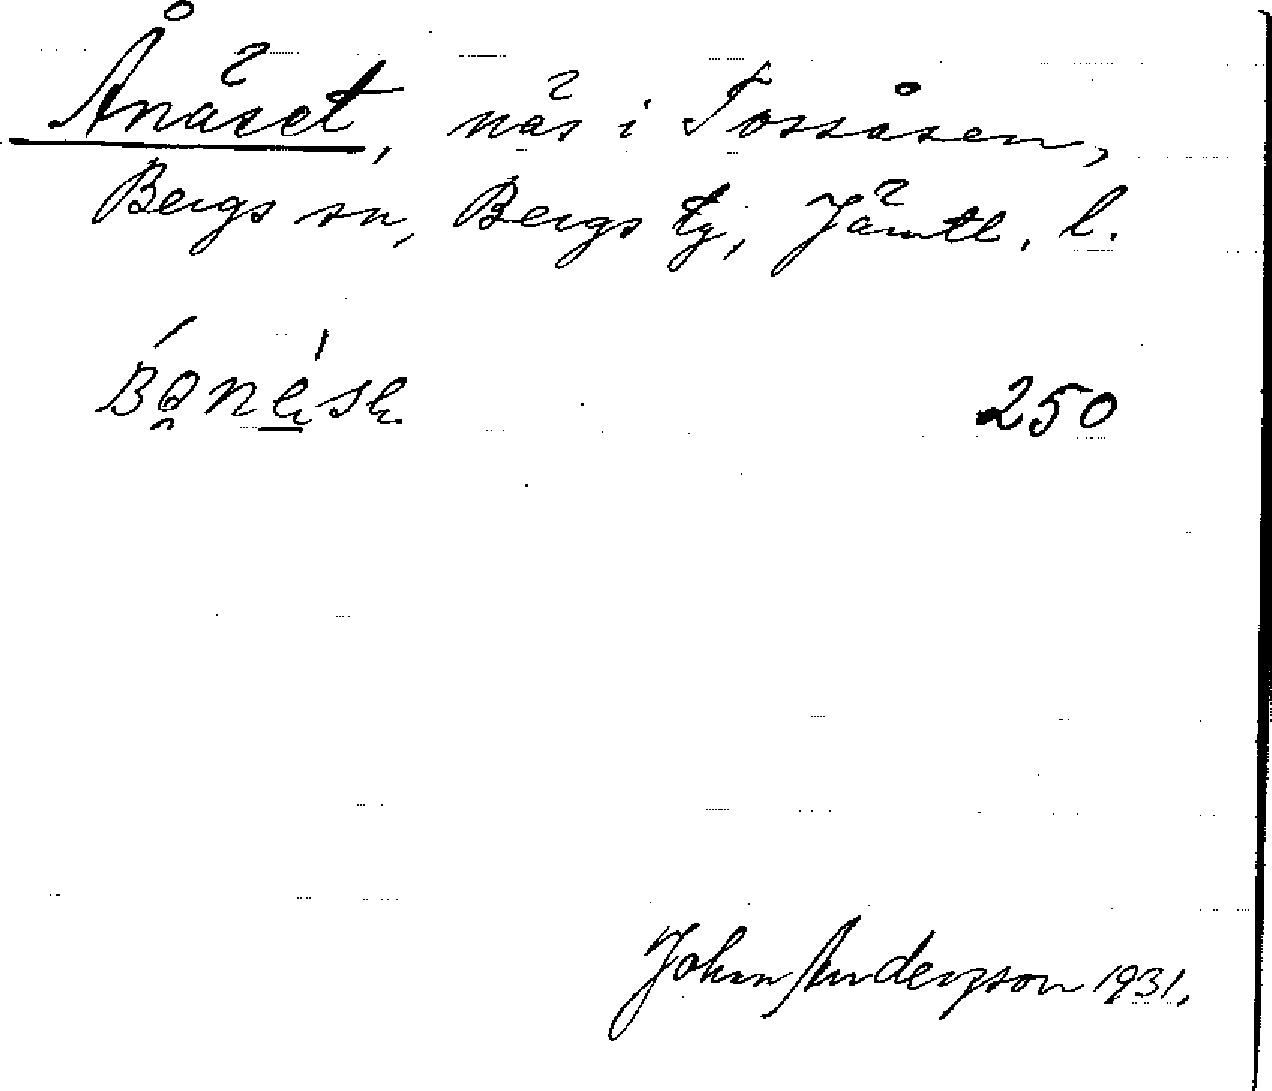 Ånäset, näs i Tossåsen,
Bergs sn, Bergs tg, Jämtl. l.
250
John Anderson 1931.